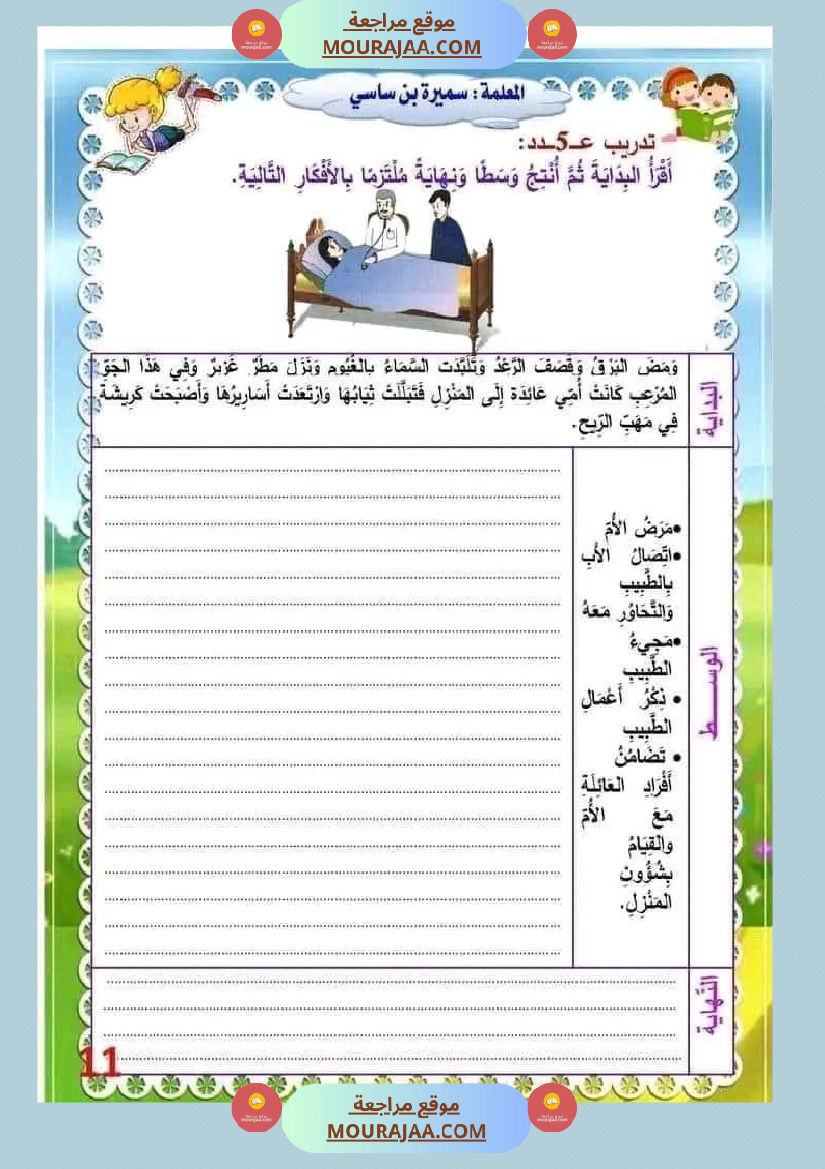 موقع مراجعة
MOURAJAA.COM
المعلمة : سميرة بن ساسي
تدريب عـ5ـدد:
أَقْرَأُ البِدَايَةَ ثُمَّ أُنْتِجُ وَسَطًا وَنِهَايَةً مُلْتَزِمًا بِالأَفْكَارِ التَّالِيَةِ.
البداية
وَمَضَ البَرْقُ وَقَصَفَ الرَّعْدُ وَتَلَبَّدَت السَّمَاءُ بِالغُيُومِ وَنَزَلَ مَطَرٌ غَزِيرٌ وَفِي هَذَا الجَوِّ
المُرْعِبِ كَانَتْ أُمِّي عَائِدَة إِلَى المَنْزِلِ فَتَبَلَّلَتْ ثِيَابُهَا وَارْتَعَدَتْ أَسَارِيرُهَا وَأَصْبَحَتْ كَرِيشَة
فِي مَهَبِّ الرِّيحِ.
الوســـــط
•مَرَضُ الأُمّ
•اتِّصَالُ الأَبِ
بِالطَّبِيبِ
وَالتَّحَاوُرِ مَعَهُ
•مَجِيءُ
الطَّبِيبِ
• ذِكْرُ أَعْمَالِ
الطَّبِيبِ
• تَضَامُنُ
أَفْرَادِ العَائِلَةِ
مَعَ الأُمّ
وَالقِيَامُ
بِشُؤُونِ
المَنْزِلِ.
النّهاية
11
موقع مراجعة
MOURAJAA.COM